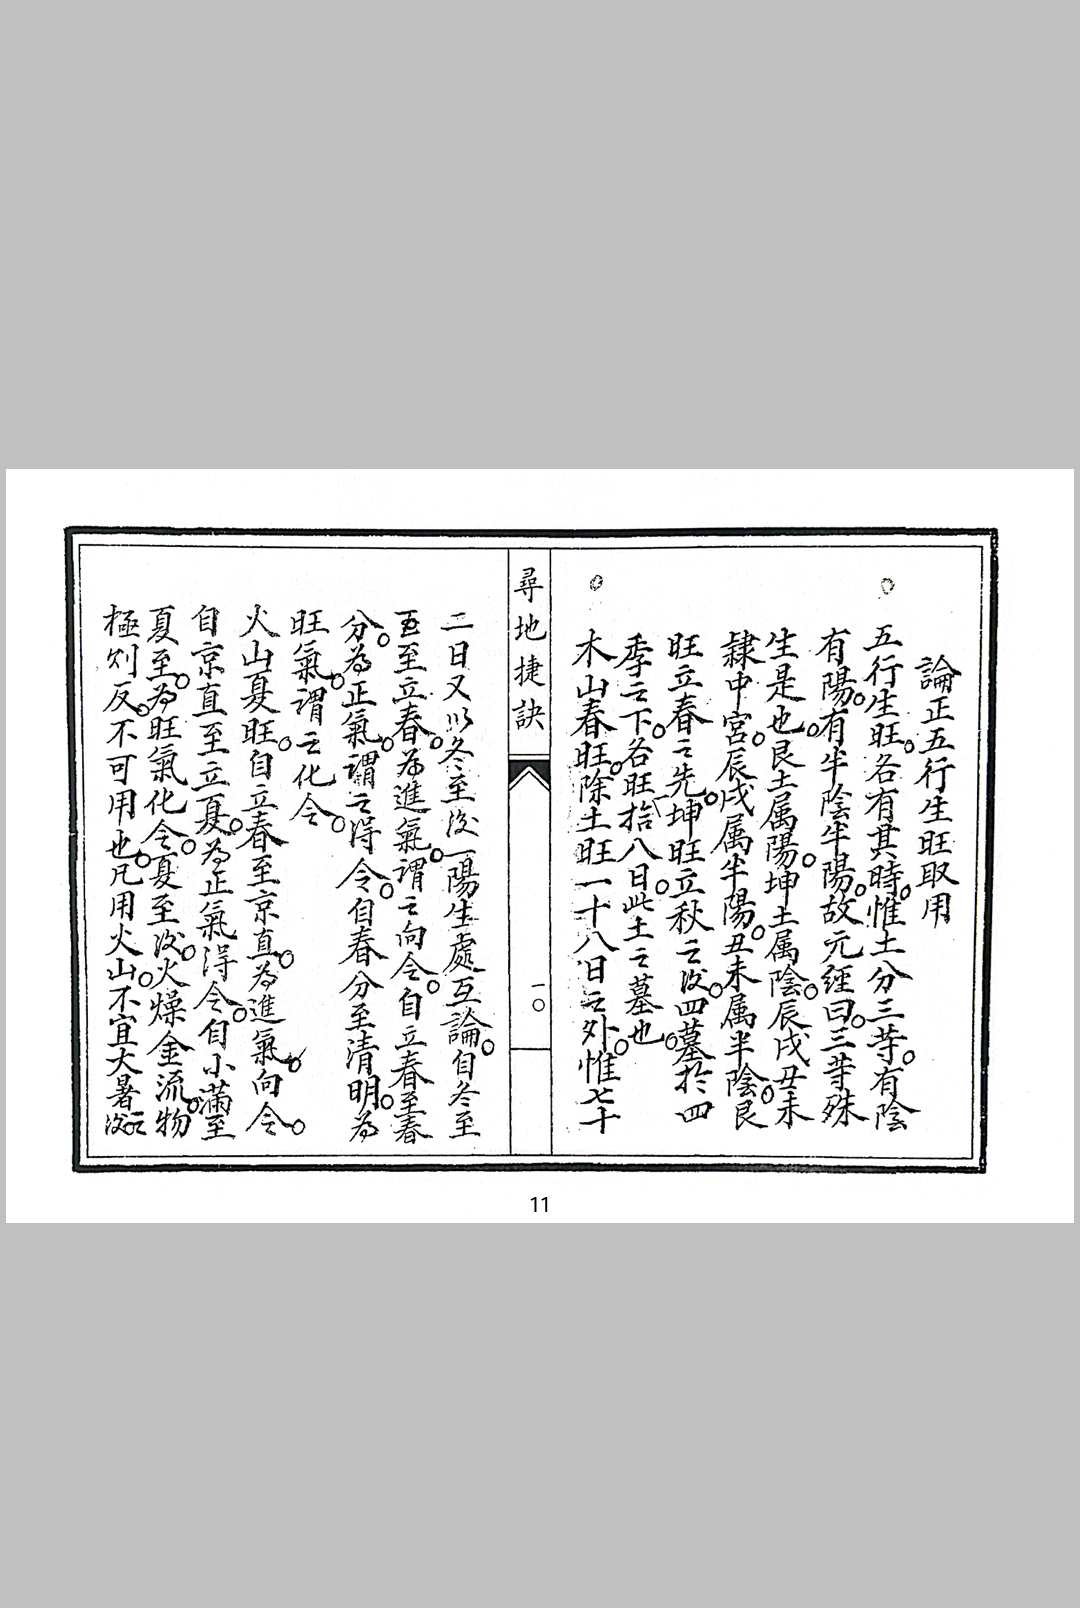 論正五行生旺取用
五行生旺。各有其時。惟土分三等。有陰
有陽。有半陰半陽。故元經曰。三等殊
生是也。艮土属陽。坤土属陰。辰戌丑未
隸中宮。辰戌属半陽。丑未属半陰。艮
旺立春之先。坤旺立秋之後。四墓於四
季之下。各旺拾八日。此土之墓也。
木山春旺。除土旺一十八日之外。惟七十
尋地捷訣
一〇
二日又以冬至後一陽生處互論。自冬至
至立春。為進氣。謂之向令。自立春至春
分。為正氣。謂之得令。自春分至清明。為
旺氣。謂之化令。
火山夏旺。自立春至京直。為進氣。向令。
自京直至立夏。為正氣得令。自小滿至
夏至。為旺氣化令。夏至後。火燥金流。物
極則反。不可用也。凡用火山。不宜大暑之後。
11